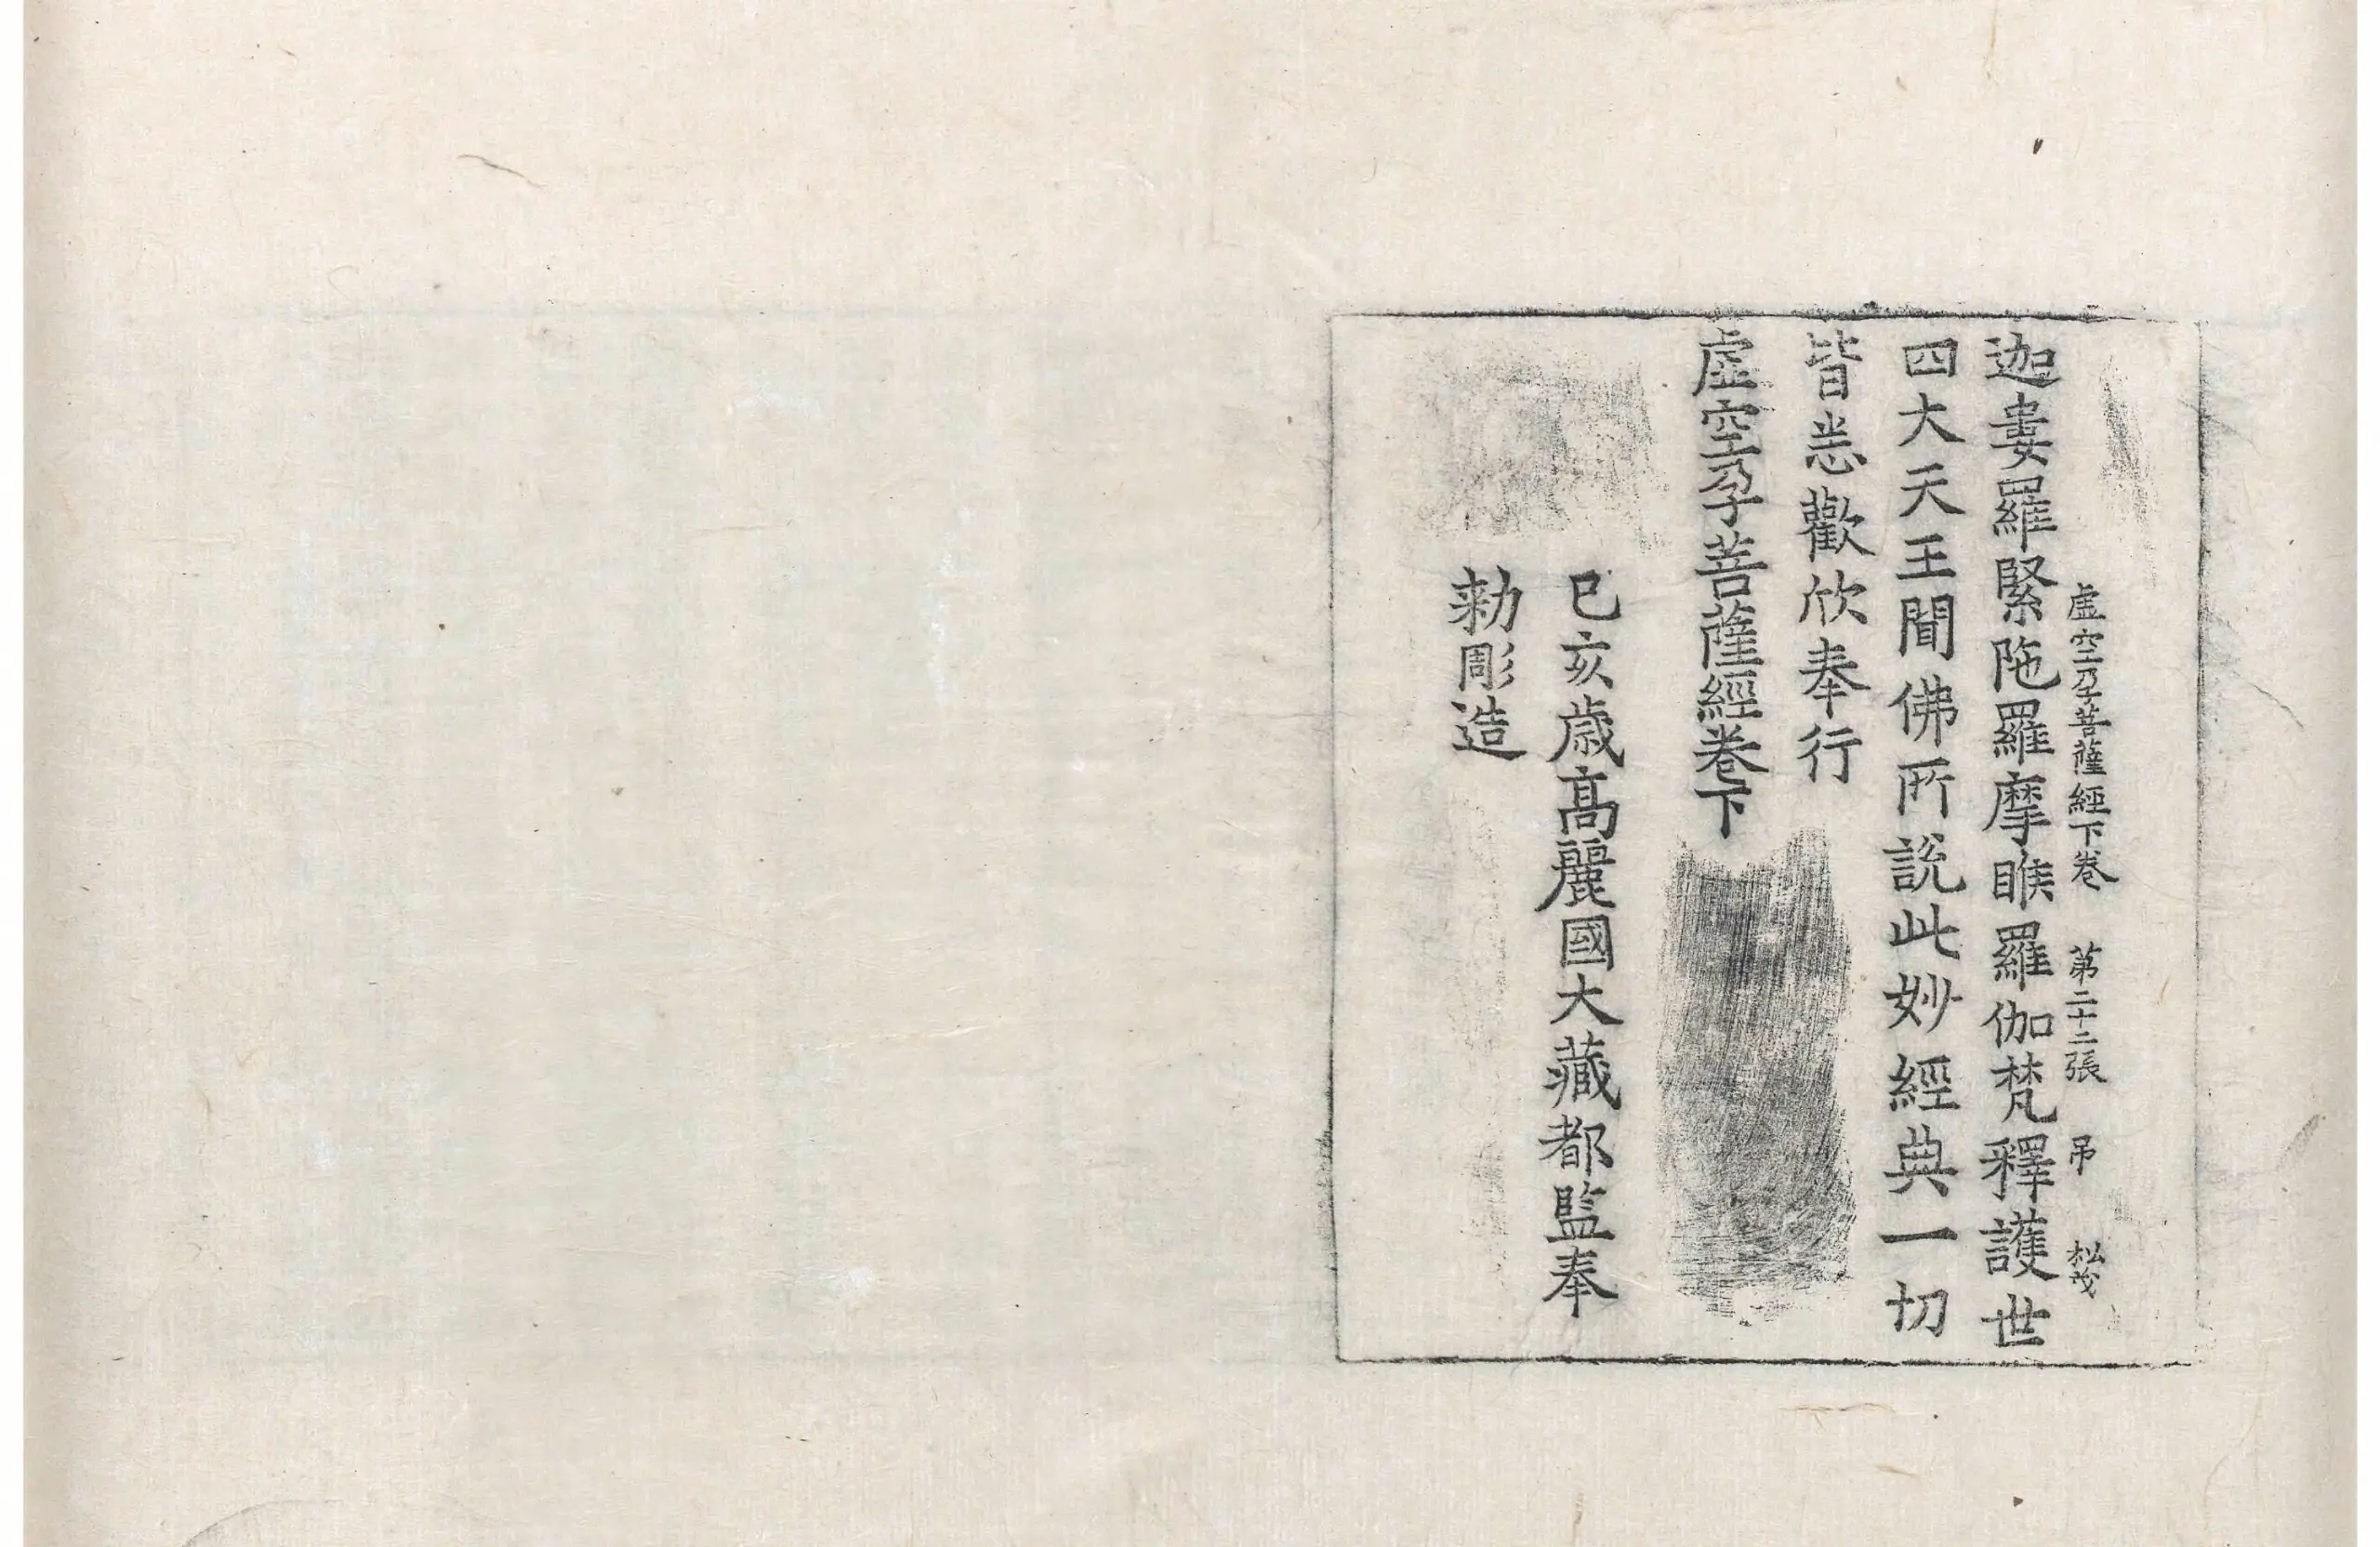 虛空孕菩薩經下卷 第二十二張 吊 松茂
迦婁羅緊陁羅摩睺羅伽梵釋護世
四大天王聞佛所說此妙經典一切
皆悉歡欣奉行
虛空孕菩薩經卷下
已亥歲高麗國大藏都監奉
勑彫造